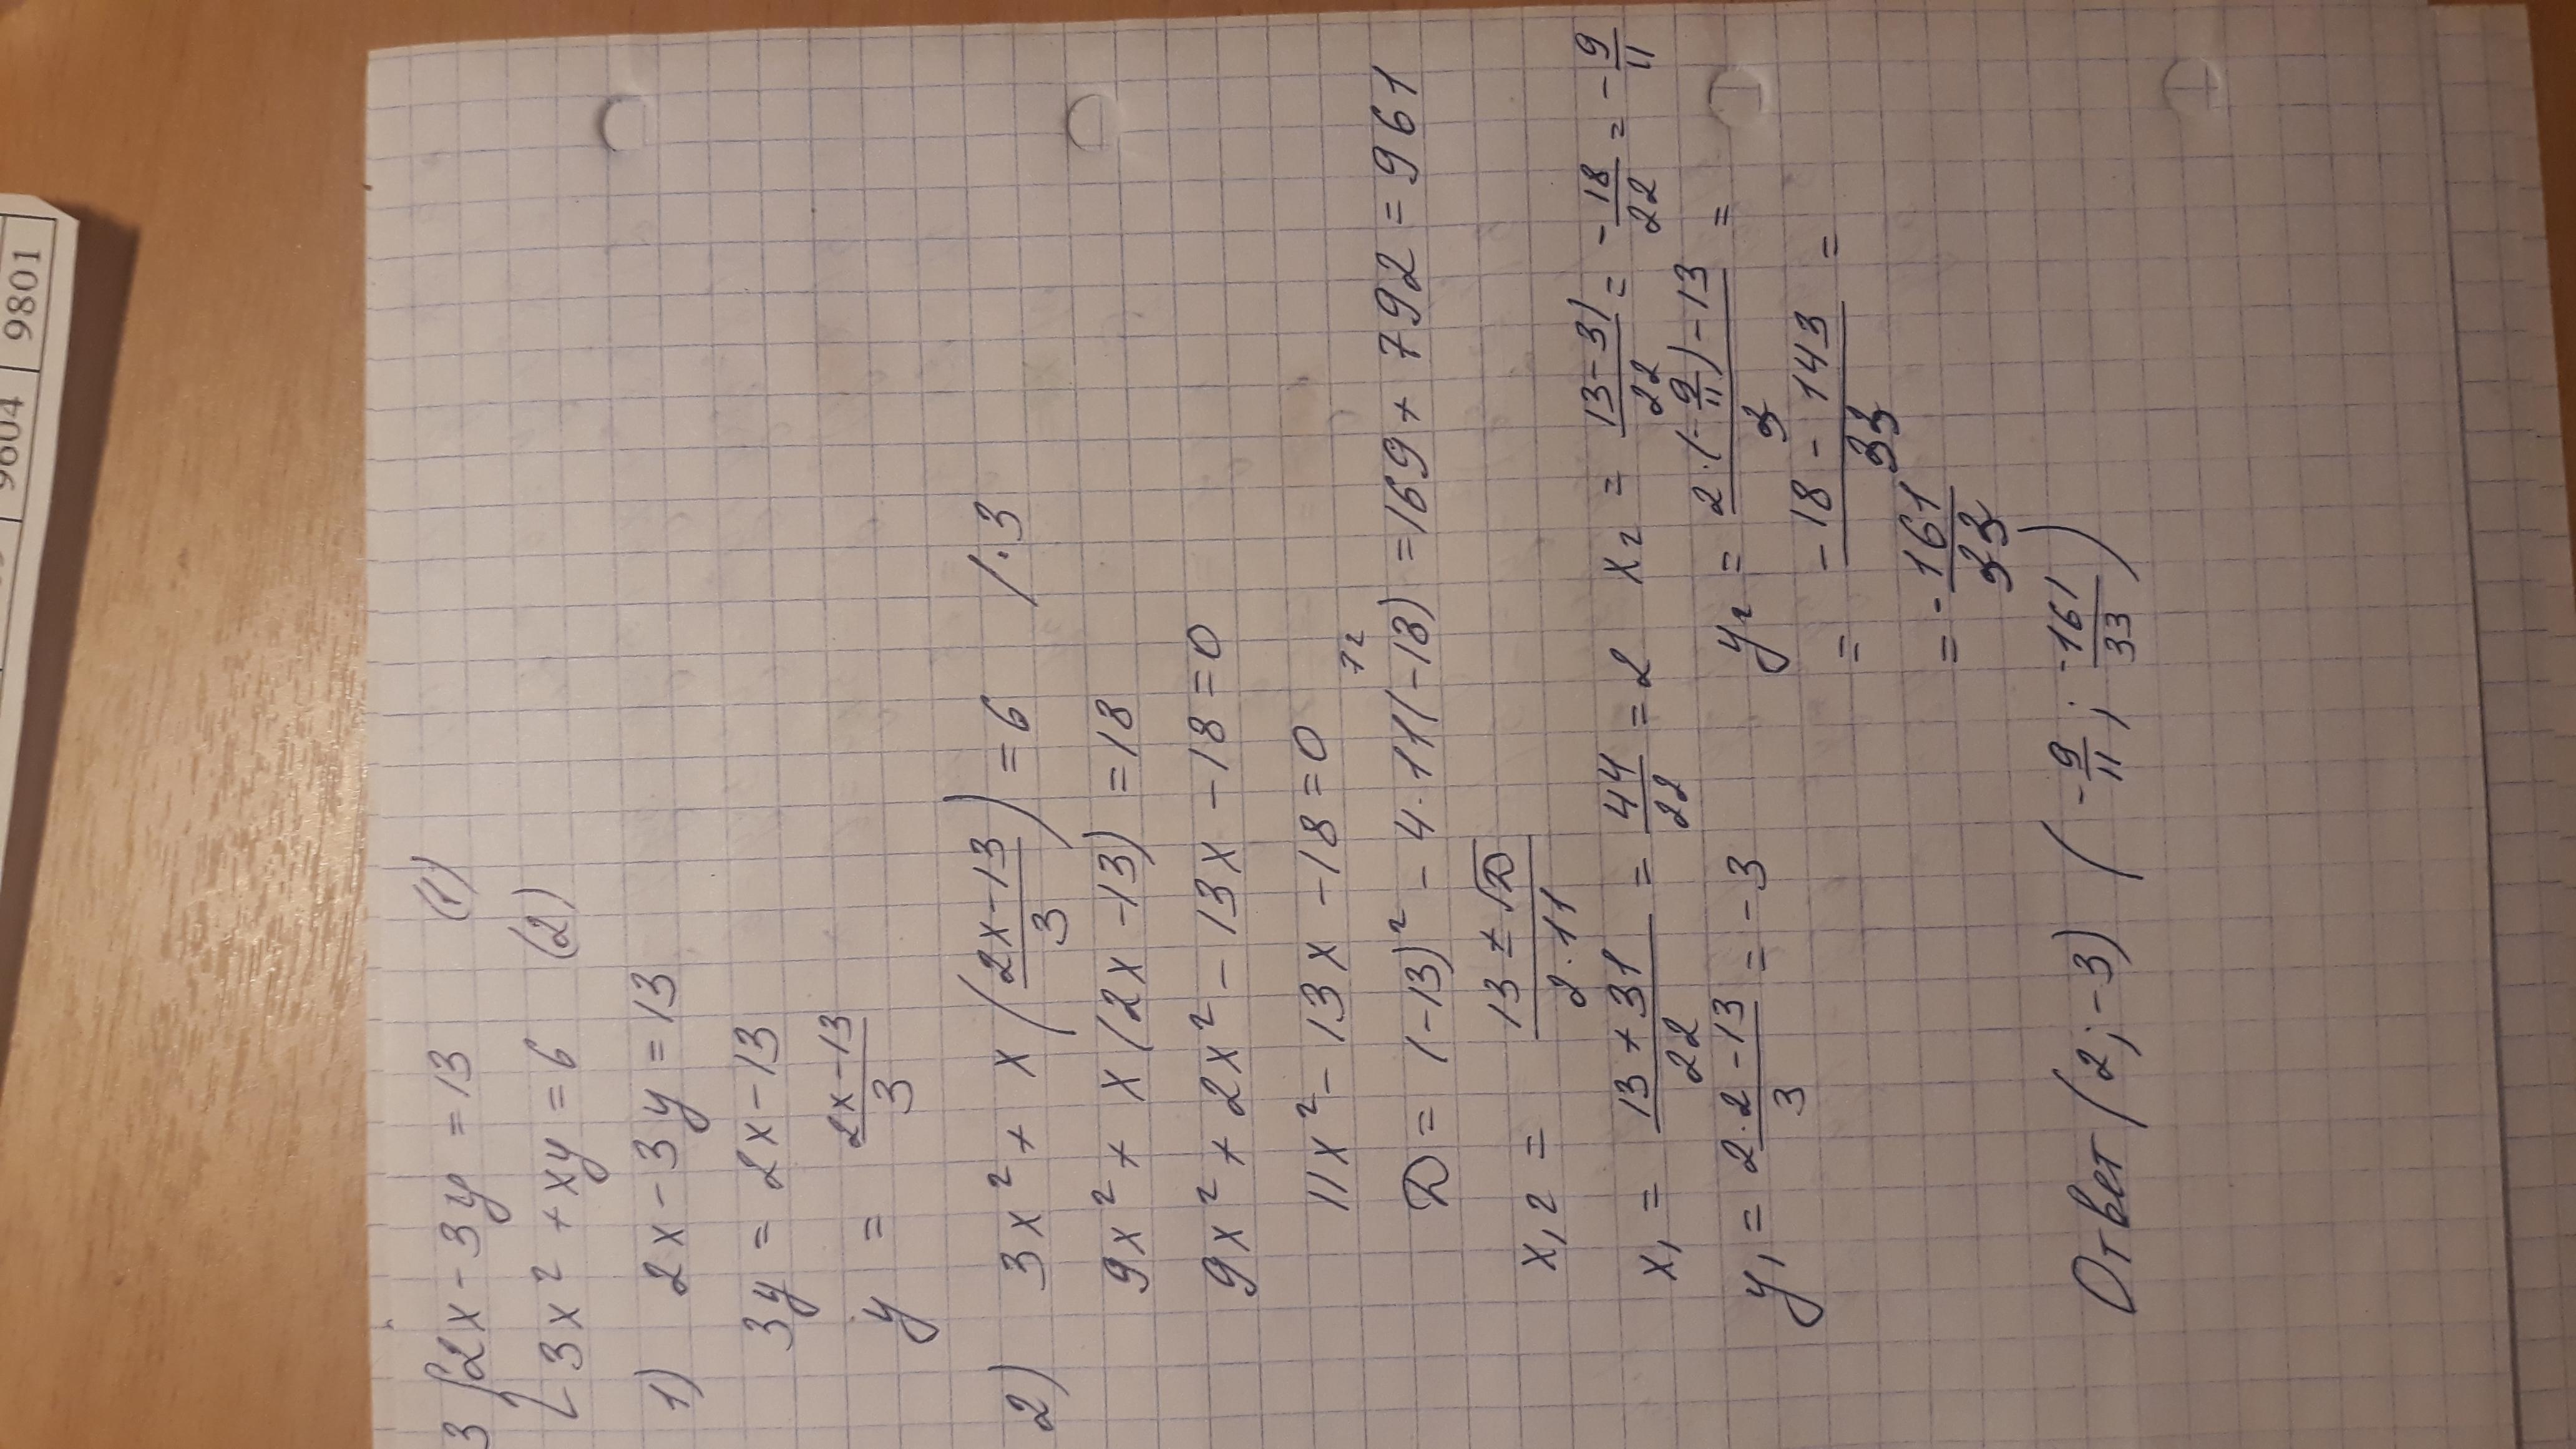 9604 | 9801
3 { 2x - 3y = 13 (1)
3x² + xy = 6 (2)
1) 2x - 3y = 13
3y = 2x - 13
y = (2x-13)/3
2) 3x² + x((2x-13)/3) = 6 /·3
9x² + x(2x-13) = 18
9x² + 2x² - 13x - 18 = 0
11x² - 13x - 18 = 0
72
D = (-13)² - 4·11(-18) = 169 + 792 = 961
x₁,₂ = (13 ± √D)/(2·11)
x₁ = (13 + 31)/22 = 44/22 = 2 x₂ = (13-31)/22 = -18/22 = -9/11
y₁ = (2·2-13)/3 = -3 y₂ = (2·(-9/11)-13)/3 =
= (-18-143)/33 =
= -161/33
Ответ (2;-3) (-9/11; -161/33)